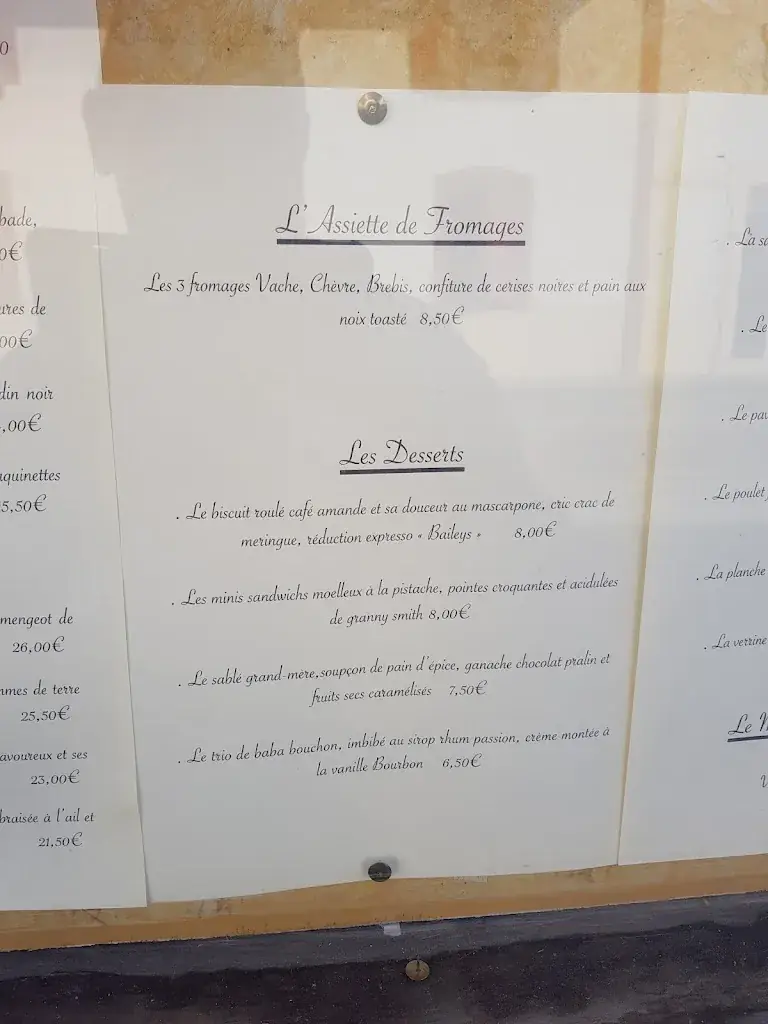 0
bade,
0€
ures de
00€
din noir
,00€
quinettes
5,50€
mengeot de
26,00€
mes de terre
25,50€
avoureux et ses
23,00€
braisée à l'ail et
21,50€
L'Assiette de Fromages
Les 3 fromages Vache, Chèvre, Brebis, confiture de cerises noires et pain aux
noix toasté 8,50€
Les Desserts
. Le biscuit roulé café amande et sa douceur au mascarpone, cric crac de
meringue, réduction expresso « Baileys » 8,00€
. Les minis sandwichs moelleux à la pistache, pointes croquantes et acidulées
de granny smith 8,00€
. Le sablé grand-mère,soupçon de pain d'épice, ganache chocolat pralin et
fruits secs caramélisés 7,50€
. Le trio de baba bouchon, imbibé au sirop rhum passion, crème montée à
la vanille Bourbon 6,50€
. La sa
. Le
. Le pav
. Le poulet
. La planche
. La verrine
Le